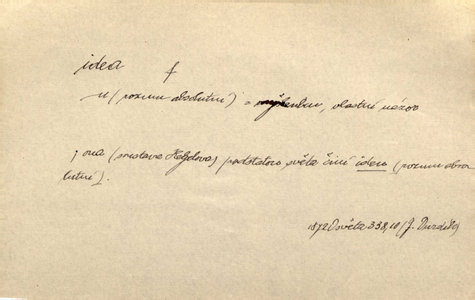 idea f
u (rozum absolutní) = myšlenkou, vlastní názor
; ona (soustava Heglova) podstatou světa činí ideu (rozum abso-
lutní).
1872 Osvěta 338,10 (J. Durdík)